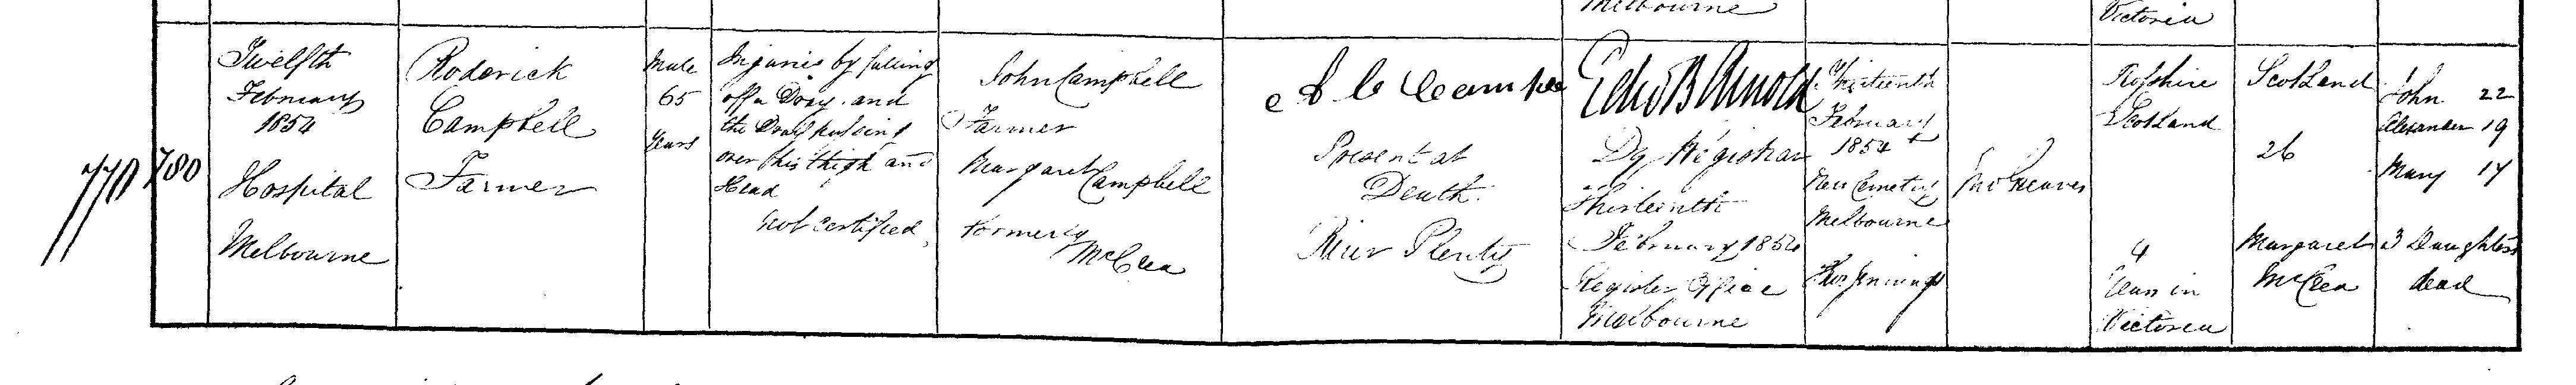 Melbourne
Victoria
770
780
Twelfth
February
1854
Hospital
Melbourne
Roderick
Campbell
Farmer
Male
65
Years
Injuries by falling
off a Dray and
the Dray passing
over his thigh and
Head
Not certified
John Campbell
Farmer
Margaret Campbell
formerly
McCrea
Present at
Death.
River Plenty
Arnold
Dy Registrar
Thirteenth
February 1854
Register Office
Melbourne
Thirteenth
February
1854
New Cemetery
Melbourne
Thos Jennings
Rosshire
Scotland
4
Years in
Victoria
Scotland
26
Margaret
McCrea
John 22
Alexander 19
Mary 17
3 Daughters
dead